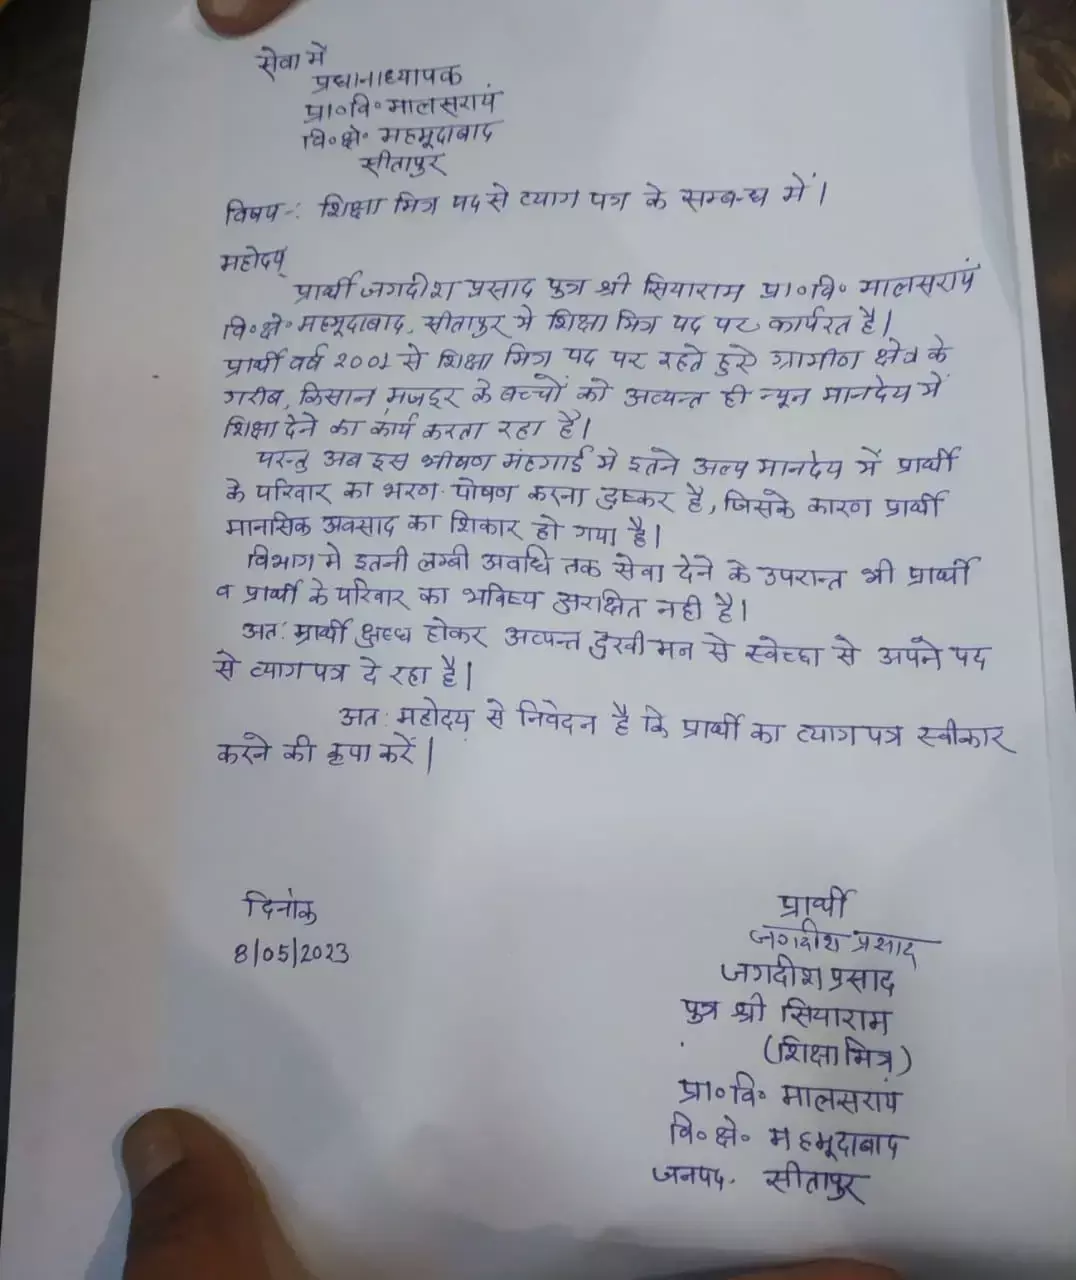 सेवा में
प्रधानाध्यापक
प्रा०वि०मालसरायं
वि०क्षे० महमूदाबाद
सीतापुर
विषय-: शिक्षा मित्र पद से त्याग पत्र के सम्बन्ध में।
महोदय
प्रार्थी जगदीश प्रसाद पुत्र श्री सियाराम प्रा०वि० मालसरायं
वि०क्षे०महमूदाबाद, सीतापुर मे शिक्षा मित्र पद पर कार्यरत है।
प्रार्थी वर्ष २००१ से शिक्षा मित्र पद पर रहते हुऐ ग्रामीण क्षेत्र के
गरीब, किसान मजदूर के बच्चों को अत्यन्त ही न्यून मानदेय में
शिक्षा देने का कार्य करता रहा है।
परन्तु अब इस भीषण मंहगाई मे इतने अल्प मानदेय में प्रार्थी
के परिवार का भरण-पोषण करना दुष्कर है, जिसके कारण प्रार्थी
मानसिक अवसाद का शिकार हो गया है।
विभाग मे इतनी लम्बी अवधि तक सेवा देने के उपरान्त भी प्रार्थी
व प्रार्थी के परिवार का भविष्य सुरक्षित नही है।
अत: प्रार्थी क्षुब्ध होकर अत्यन्त दुखी मन से स्वेच्छा से अपने पद
से त्याग पत्र दे रहा है।
अत: महोदय से निवेदन है कि प्रार्थी का त्याग पत्र स्वीकार
करने की कृपा करें।
दिनांक
8/05/2023
प्रार्थी
जगदीश प्रसाद
जगदीश प्रसाद
पुत्र श्री सियाराम
(शिक्षा मित्र)
प्रा०वि० मालसरायं
वि०क्षे० महमूदाबाद
जनपद- सीतापुर